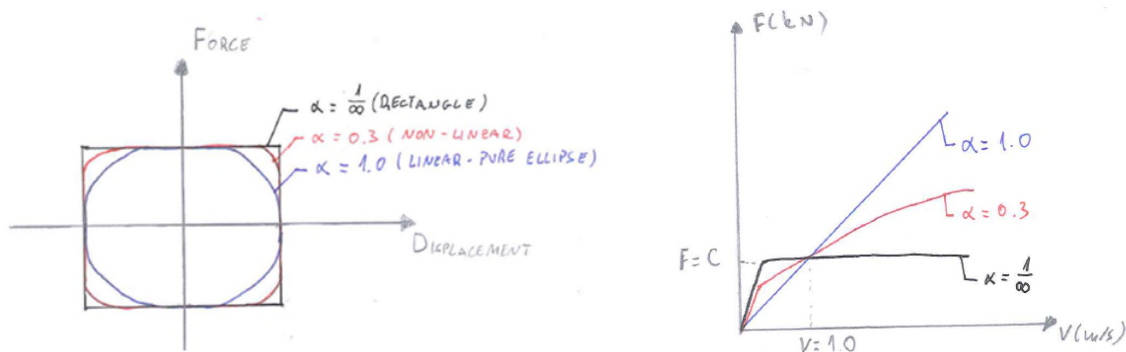 FORCE
α = 1/∞ (RECTANGLE)
α = 0.3 (NON-LINEAR)
α = 1.0 (LINEAR-PURE ELLIPSE)
DISPLACEMENT
F(kN)
α = 1.0
α = 0.3
F = C
α = 1/∞
V = 1.0
V(m/s)